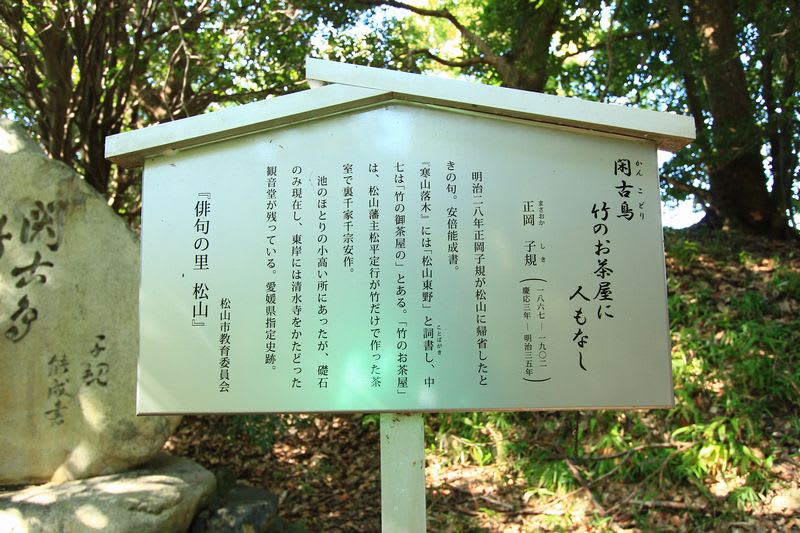 閑古鳥
かんこどり
竹のお茶屋に
人もなし
正岡 子規
まさおか しき
(一八六七―一九〇二
慶応三年―明治三五年)
明治二八年正岡子規が松山に帰省したと
きの句。安倍能成書。
『寒山落木』には「松山東野」と詞書し、中
ことばがき
七は「竹の御茶屋の」とある。「竹のお茶屋」
は、松山藩主松平定行が竹だけで作った茶
室で裏千家千宗安作。
池のほとりの小高い所にあったが、礎石
のみ現在し、東岸には清水寺をかたどった
観音堂が残っている。愛媛県指定史跡。
松山市教育委員会
『俳句の里 松山』
閑古鳥
子規
能成書